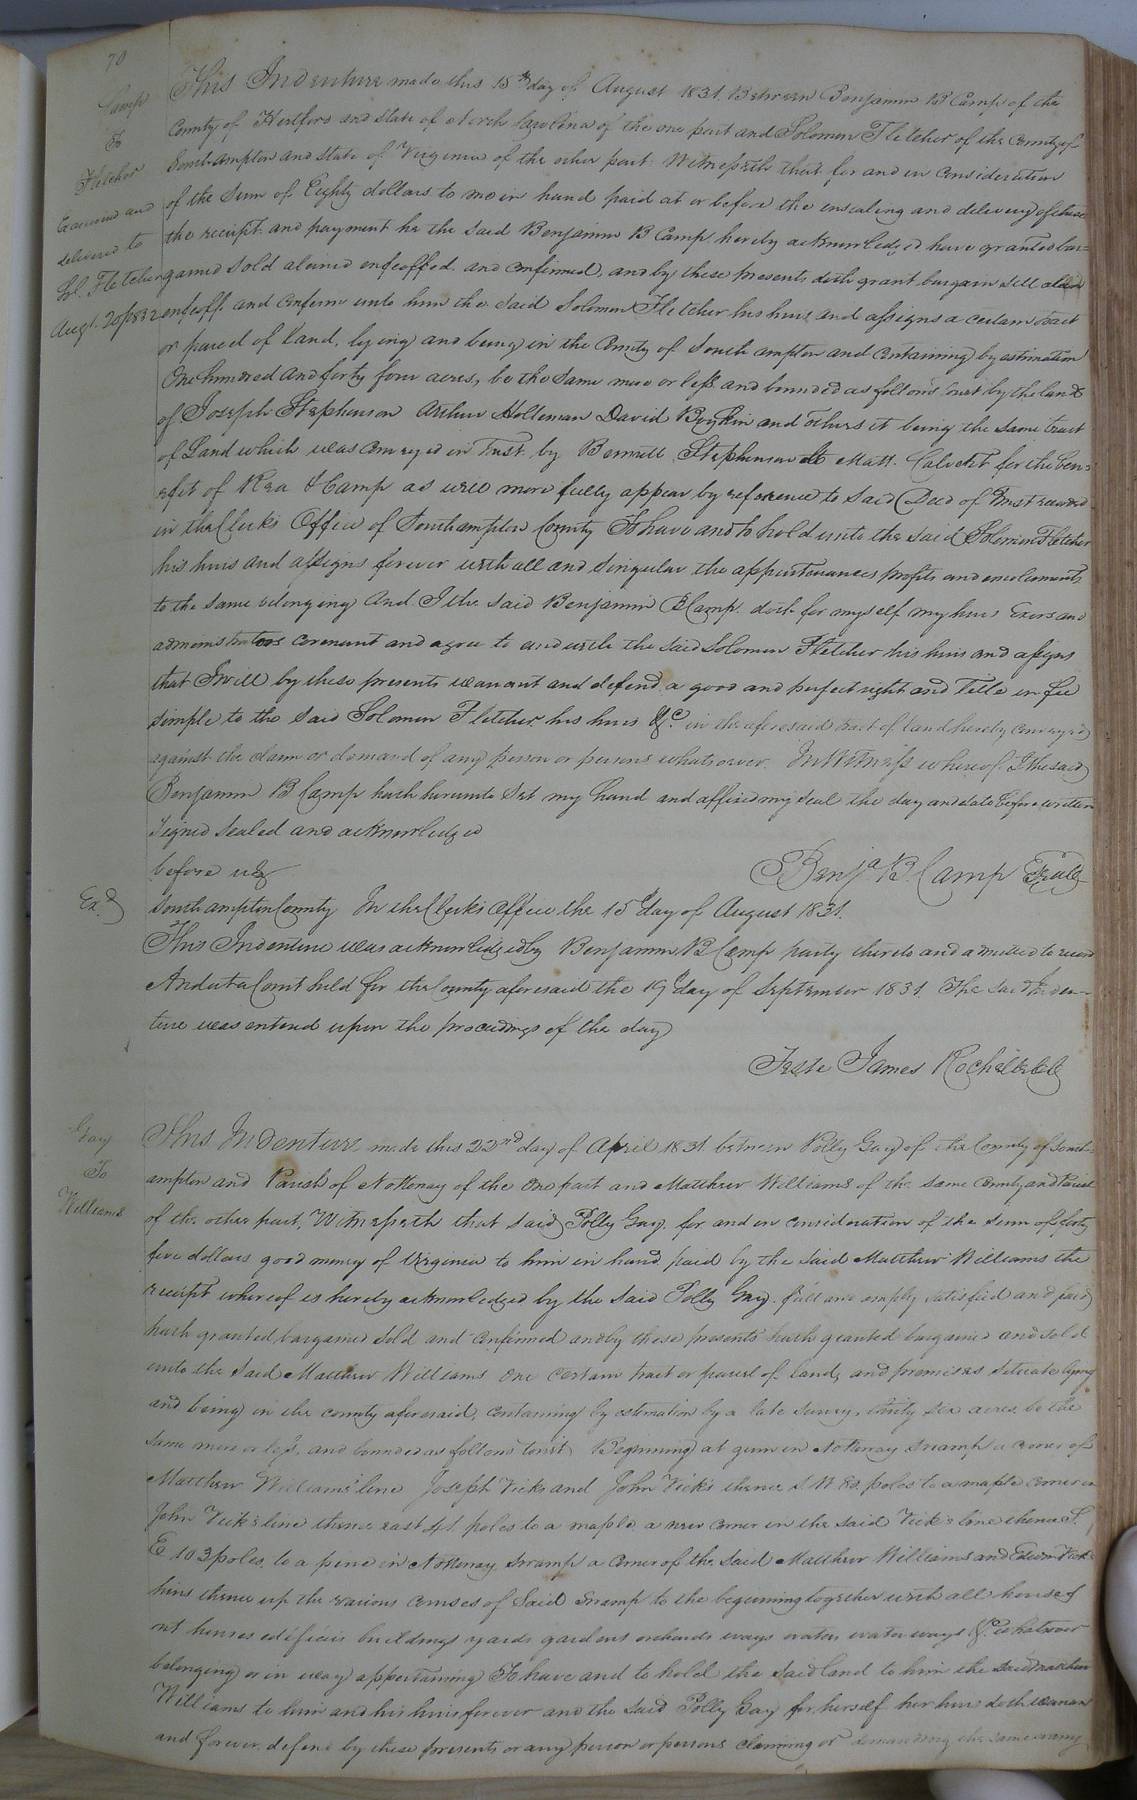 70
Camp
To
Fletcher
Examined and
delivered to
Sol. Fletcher
Augt. 20th 1832
This Indenture made this 15th day of August 1831. Between Benjamin B Camp of the
County of Hertford and State of North Carolina of the one part and Solomon Fletcher of the County of
Southampton and State of Virginia of the other part. Witnesseth that for and in Consideration
of the Sum of Eighty dollars to me in hand paid at or before the ensealing and delivery of these
the receipt and payment he the said Benjamin B Camp hereby acknowledged have granted bar=
gained Sold aliened enfeoffed and confirmed, and by these presents doth grant bargain sell alien
enfeoff and confirm unto him the Said Solomon Fletcher his heirs and assigns a certain tract
or parcel of land, lying and being in the County of Southampton and Containing by estimation
One hundred and forty four acres, be the same more or less and bounded as follows viz: by the lands
of Joseph Stephenson Arthur Holleman David Boykin and others it being the same tract
of Land which was conveyed in Trust by Bennett Stephenson to Matt. Calvert for the ben=
efit of Rea & Camp as will more fully appear by reference to said Deed of Trust recorded
in the Clerks Office of Southampton County To have and to hold unto the said Solomon Fletcher
his heirs and assigns forever with all and Singular the appurtenances profits and emoluments
to the same belonging And I the said Benjamin B Camp doth for myself my heirs Exors and
administrators covenant and agree to and with the said Solomon Fletcher his heirs and assigns
that I will by these presents warrant and defend a good and perfect right and Title in fee
simple to the said Solomon Fletcher his heirs &c. in the aforesaid tract of land hereby conveyed
against the claim or demand of any person or persons whatsoever. In Witness whereof I the said
Benjamin B Camp hath hereunto Set my hand and affixed my Seal the day and date before written
Signed Sealed and acknowledged
before us
Benja B Camp Seal
Exd
Southampton County In the Clerks Office the 15th day of August 1831.
This Indenture was acknowledged by Benjamin B Camp party thereto and admitted to record
And at a Court held for the County aforesaid the 19th day of September 1831. The said Inden-
ture was entered upon the proceedings of the day
Teste James Rochelle
Gay
To
Williams
This Indenture made this 22nd day of April 1831 between Polly Gay of the County of South-
ampton and Parish of Nottoway of the One part and Matthew Williams of the same County and Parish
of the other part, Witnesseth that said Polly Gay for and in consideration of the sum of forty
five dollars good money of Virginia to him in hand paid by the said Matthew Williams the
receipt whereof is hereby acknowledged by the said Polly Gay full and amply satisfied and paid
hath granted bargained sold and confirmed and by these presents hath granted bargained and sold
unto the said Matthew Williams One certain tract or parcel of land, and premises situate lying
and being in the county aforesaid, containing by estimation by a late survey, thirty six acres be the
same more or less, and bounded as follows to wit, Beginning at gum in Nottoway swamp a corner of
Matthew Williams' line Joseph Vicks and John Vicks thence S. W 80. poles to a maple corner in
John Vick's line thence east 41 poles to a maple a new corner in the said Vick's line thence S.
E 103 poles, to a pine in Nottoway swamp a corner of the said Matthew Williams and Edwin Vick
hins thence up the various courses of Said Swamp to the beginning together with all houses
out houses edificis buildings yards gardens orchards ways waters water ways &c. whatsoever
belonging or in way appertaining To have and to hold the said land to him the said Matthew
Williams to him and his heirs forever and the said Polly Gay for herself her heirs doth warrant
and forever defend by these presents or any person or persons claiming or demanding the same or any